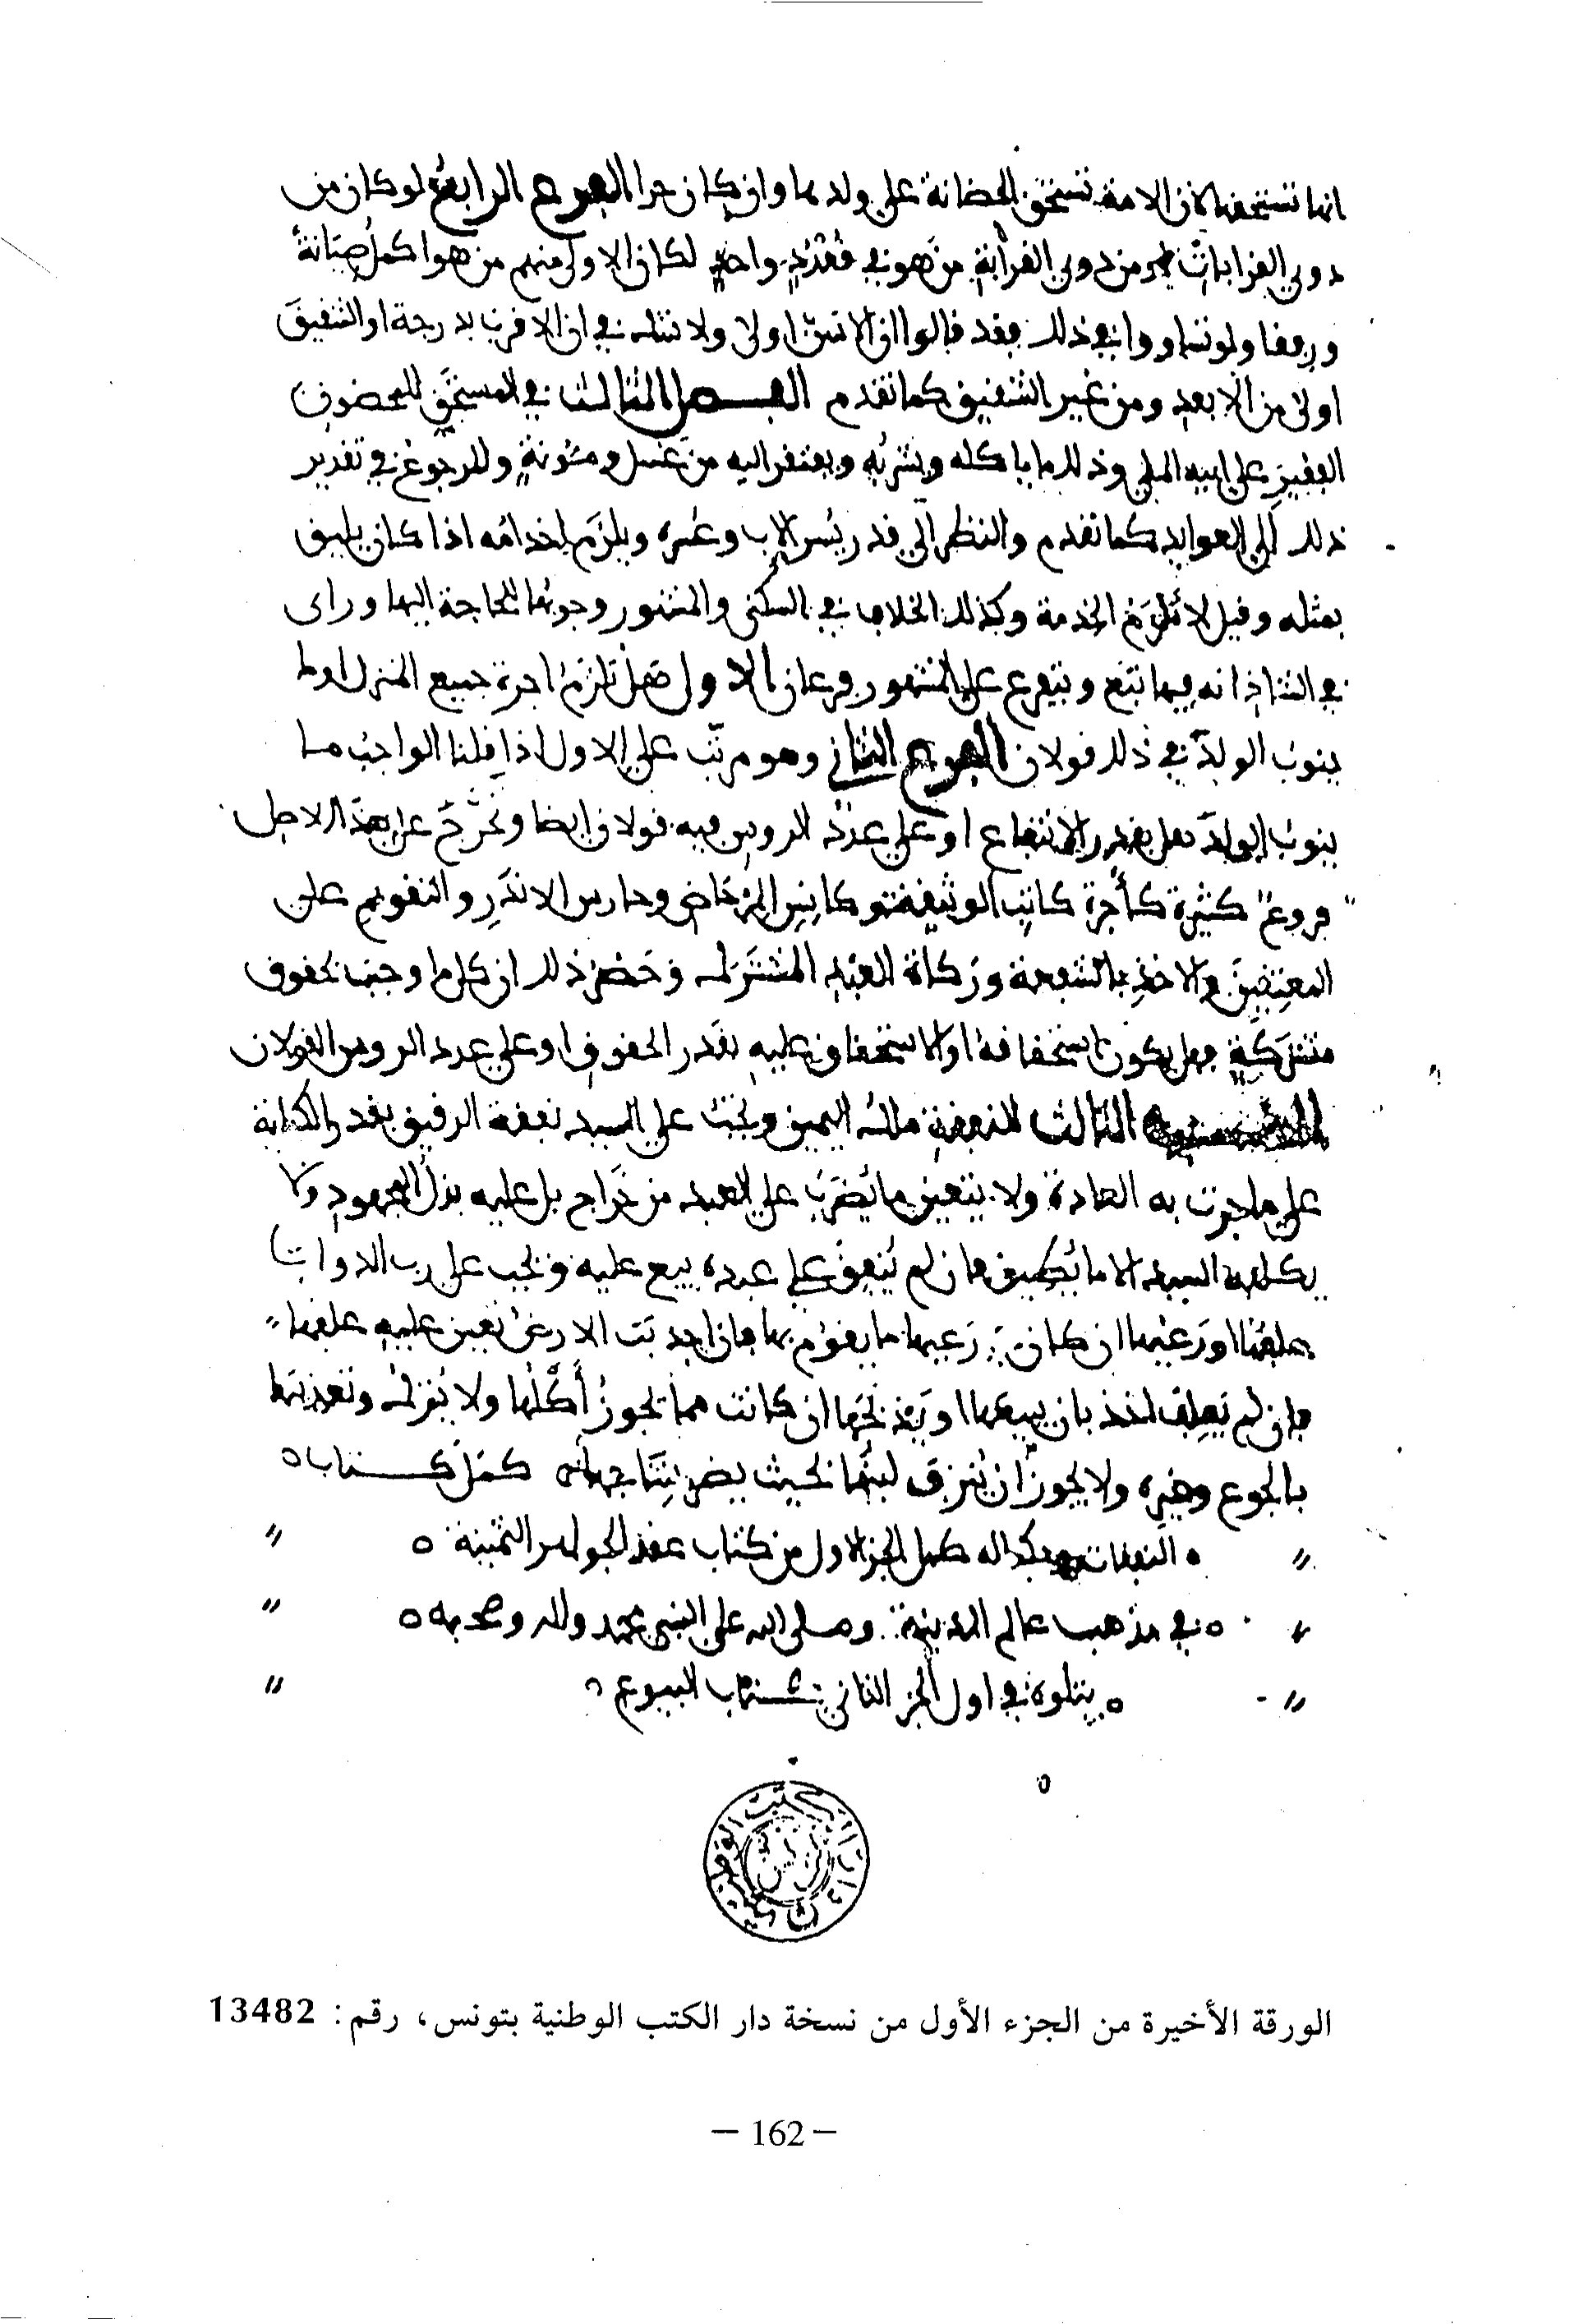 انها تستحقها لان الامة تستحق الحضانة على ولدها وان كان حرا الفرع الرابع لو كان من
ذوي القرابات من ذوي القرابة من هو في قعدد واحد لكان الاولى منهم من هو اكمل صيانة
ورفقا ولو تساووا في ذلك فقد قالوا ان الاسن اولى ولا شك في ان الاقرب بدرجة او الشقيق
اولى من الابعد ومن غير الشقيق كما تقدم الفصل الثالث في المستحق للمحضون
الفقير على ابيه الملي وذلك ما ياكله ويشربه ويفتقر اليه من غسل ومئونة والرجوع في تقدير
ذلك الى العوايد كما تقدم والنظر الى قدر يسر الاب وعسره ويلزم اخدامه اذا كان يليق
بمثله وقيل لا تلزم الخدمة وكذلك الخلاف في السكنى والمشهور وجوبها للحاجة اليها وراى
في الشاذ انه فيها تبع ويتفرع على المشهور فرعان الاول هل تلزم اجرة جميع المنزل او ما
ينوب الولد في ذلك قولان الفرع الثاني وهو مرتب على الاول اذا قلنا الواجب ما
ينوب الولد فهل بقدر الانتفاع او على عدد الروس فيه قولان ايضا وتخرج على هذا الاصل
فروع كثيرة كأجرة كاتب الوثيقة وكانس المرحاض وحارس الاندر والتقويم على
المعتقين والاخذ بالشفعة وزكاة العبد المشترك وحصر ذلك ان كل ما وجب بحقوق
مشتركة فهل يكون استحقاقه او الاستحقاق عليه بقدر الحقوق او على عدد الروس القولان
الثالث للنفقة ملك اليمين ويجب على السيد نفقة الرقيق بقدر الكفاية
على ما جرت به العادة ولا يتعين ما يضرب على العبد من خراج بل عليه بذل المجهود ولا
يكلفه السيد الا ما يطيق فان لم ينفق على عبده بيع عليه ويجب على رب الدواب
علفها او رعيها ان كان في رعيها ما يقوم بها فان اجدبت الارض تعين عليه علفها
فان لم يعلف اخذ بان يبيعها او يذبحها ان كانت مما يجوز أكلها ولا يترك وتعذيبها
بالجوع وغيره ولا يجوز ان ينزف لبنها بحيث يضر بنتاجها كمل كتاب
النفقات وبكماله كمل الجز الاول من كتاب عقد الجواهر الثمينة
في مذهب عالم المدينة وصلى الله على النبي محمد واله وصحبه
يتلوه في اول الجز الثاني كتاب البيوع
دار الكتب الوطنية تونس
الورقة الأخيرة من الجزء الأول من نسخة دار الكتب الوطنية بتونس، رقم: 13482
— 162 —